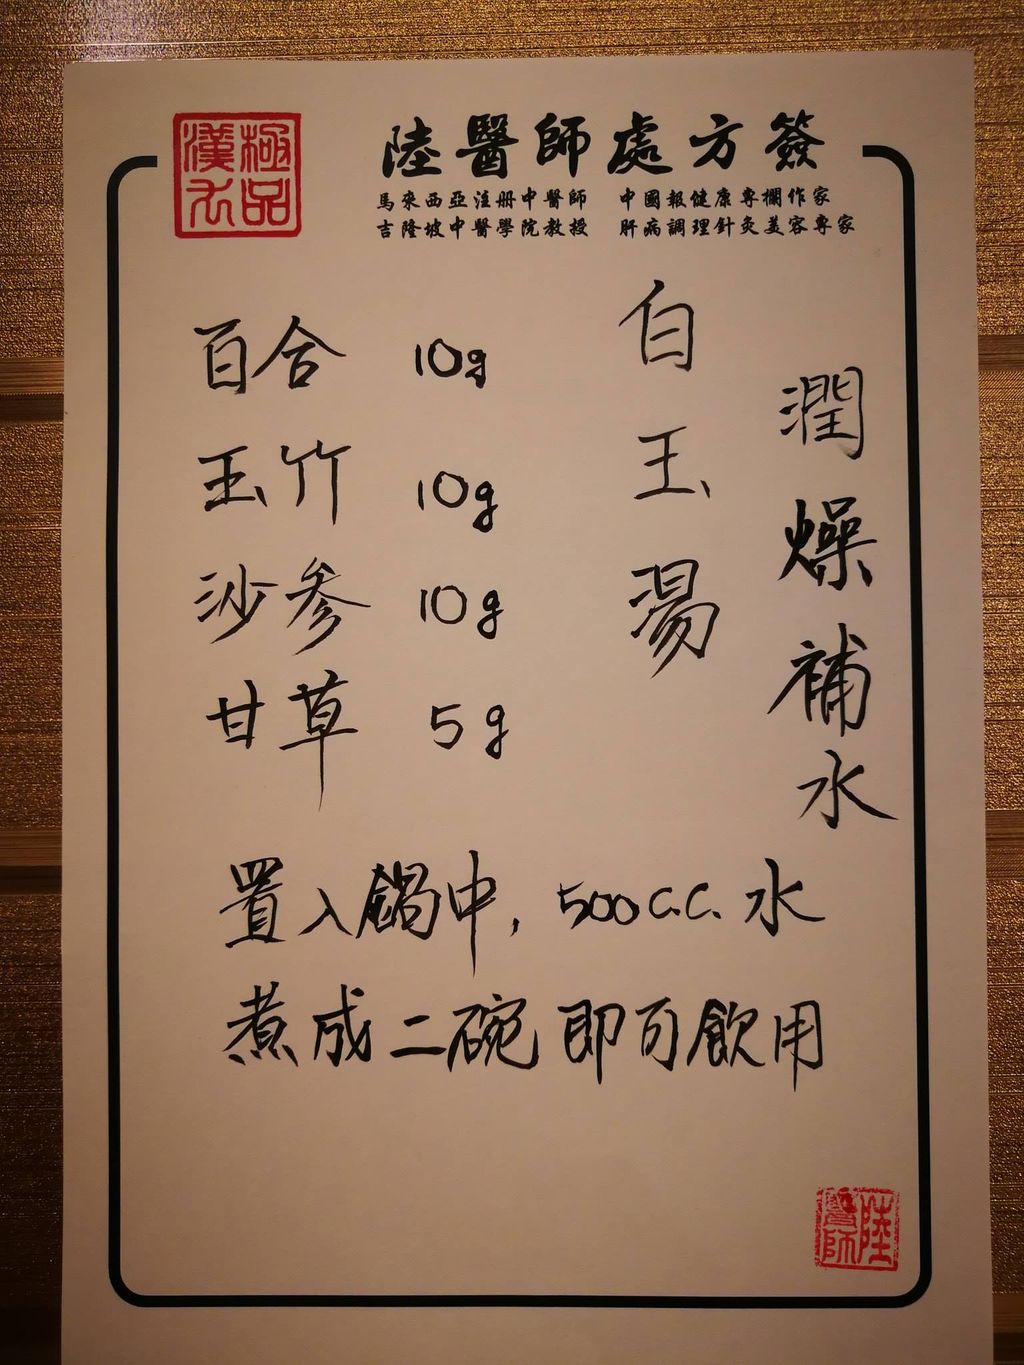 極品漢方
陸醫師處方簽
馬來西亞注册中醫師 中國報健康專欄作家
吉隆坡中醫學院教授 肝病調理針灸美容專家
潤燥補水
白玉湯
百合 10g
玉竹 10g
沙參 10g
甘草 5g
置入鍋中，500c.c.水
煮成二碗即可飲用
陸醫師